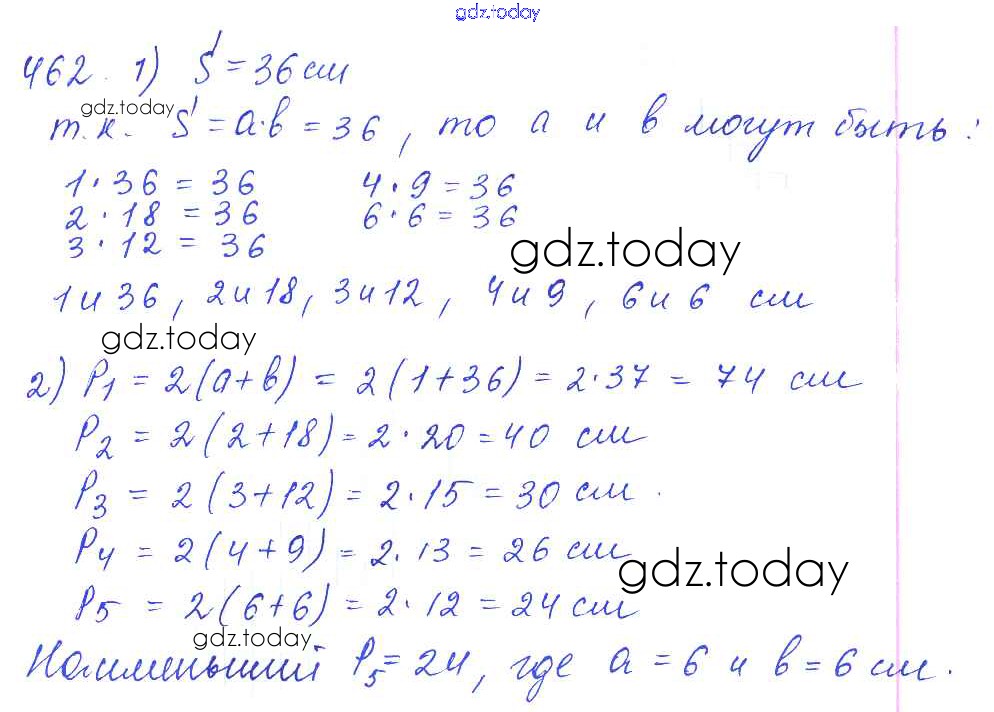 gdz.today
462. 1) S = 36 см
gdz.today
т.к. S = a·b = 36, то a и b могут быть:
1·36 = 36 4·9 = 36
2·18 = 36 6·6 = 36
3·12 = 36
gdz.today
1 и 36, 2 и 18, 3 и 12, 4 и 9, 6 и 6 см
gdz.today
2) P1 = 2(a+b) = 2(1+36) = 2·37 = 74 см
P2 = 2(2+18) = 2·20 = 40 см
P3 = 2(3+12) = 2·15 = 30 см.
P4 = 2(4+9) = 2·13 = 26 см
gdz.today
P5 = 2(6+6) = 2·12 = 24 см
gdz.today
Наименьший P5 = 24, где a = 6 и b = 6 см.